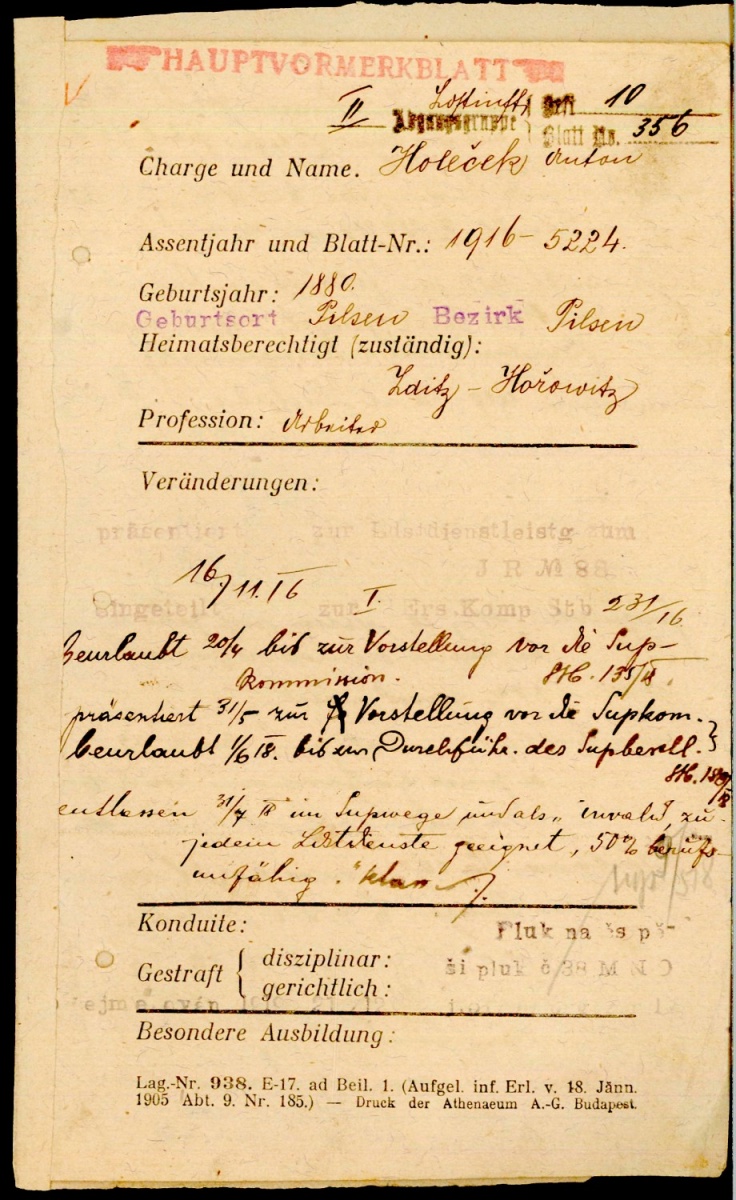 HAUPTVORMERKBLATT
II Abgangsgruppe Heft 10
Blatt No. 356
Charge und Name. Holeček Anton
Assentjahr und Blatt-Nr.: 1916 - 5224.
Geburtsjahr: 1880.
Geburtsort Pilsen Bezirk Pilsen
Heimatsberechtigt (zuständig):
Zditz - Hořowitz
Profession: Arbeiter
Veränderungen:
präsentiert zur Ldstdienstleistg zum
J R № 88
16/11.16 I.
eingeteilt zur Ers.Komp Stb 231/16
Beurlaubt 20/4 bis zur Vorstellung vor die Sup-
kommission.
präsentiert 31/5 zur Vorstellung vor die Supkom.
beurlaubt 1/6 18. bis zur Durchführ. des Supbeschl.
entlassen 31/7 18 im Supwege und als „invalid, zu
jedem Lstdienste geeignet, 50% berufs-
unfähig."
Konduite:
Pluk na čs pě-
Gestraft { disziplinar:
ší pluk č/38 M N O
gerichtlich:
Besondere Ausbildung:
Lag.-Nr. 938. E-17. ad Beil. 1. (Aufgel. inf. Erl. v. 18. Jänn.
1905 Abt. 9. Nr. 185.) — Druck der Athenaeum A.-G. Budapest.